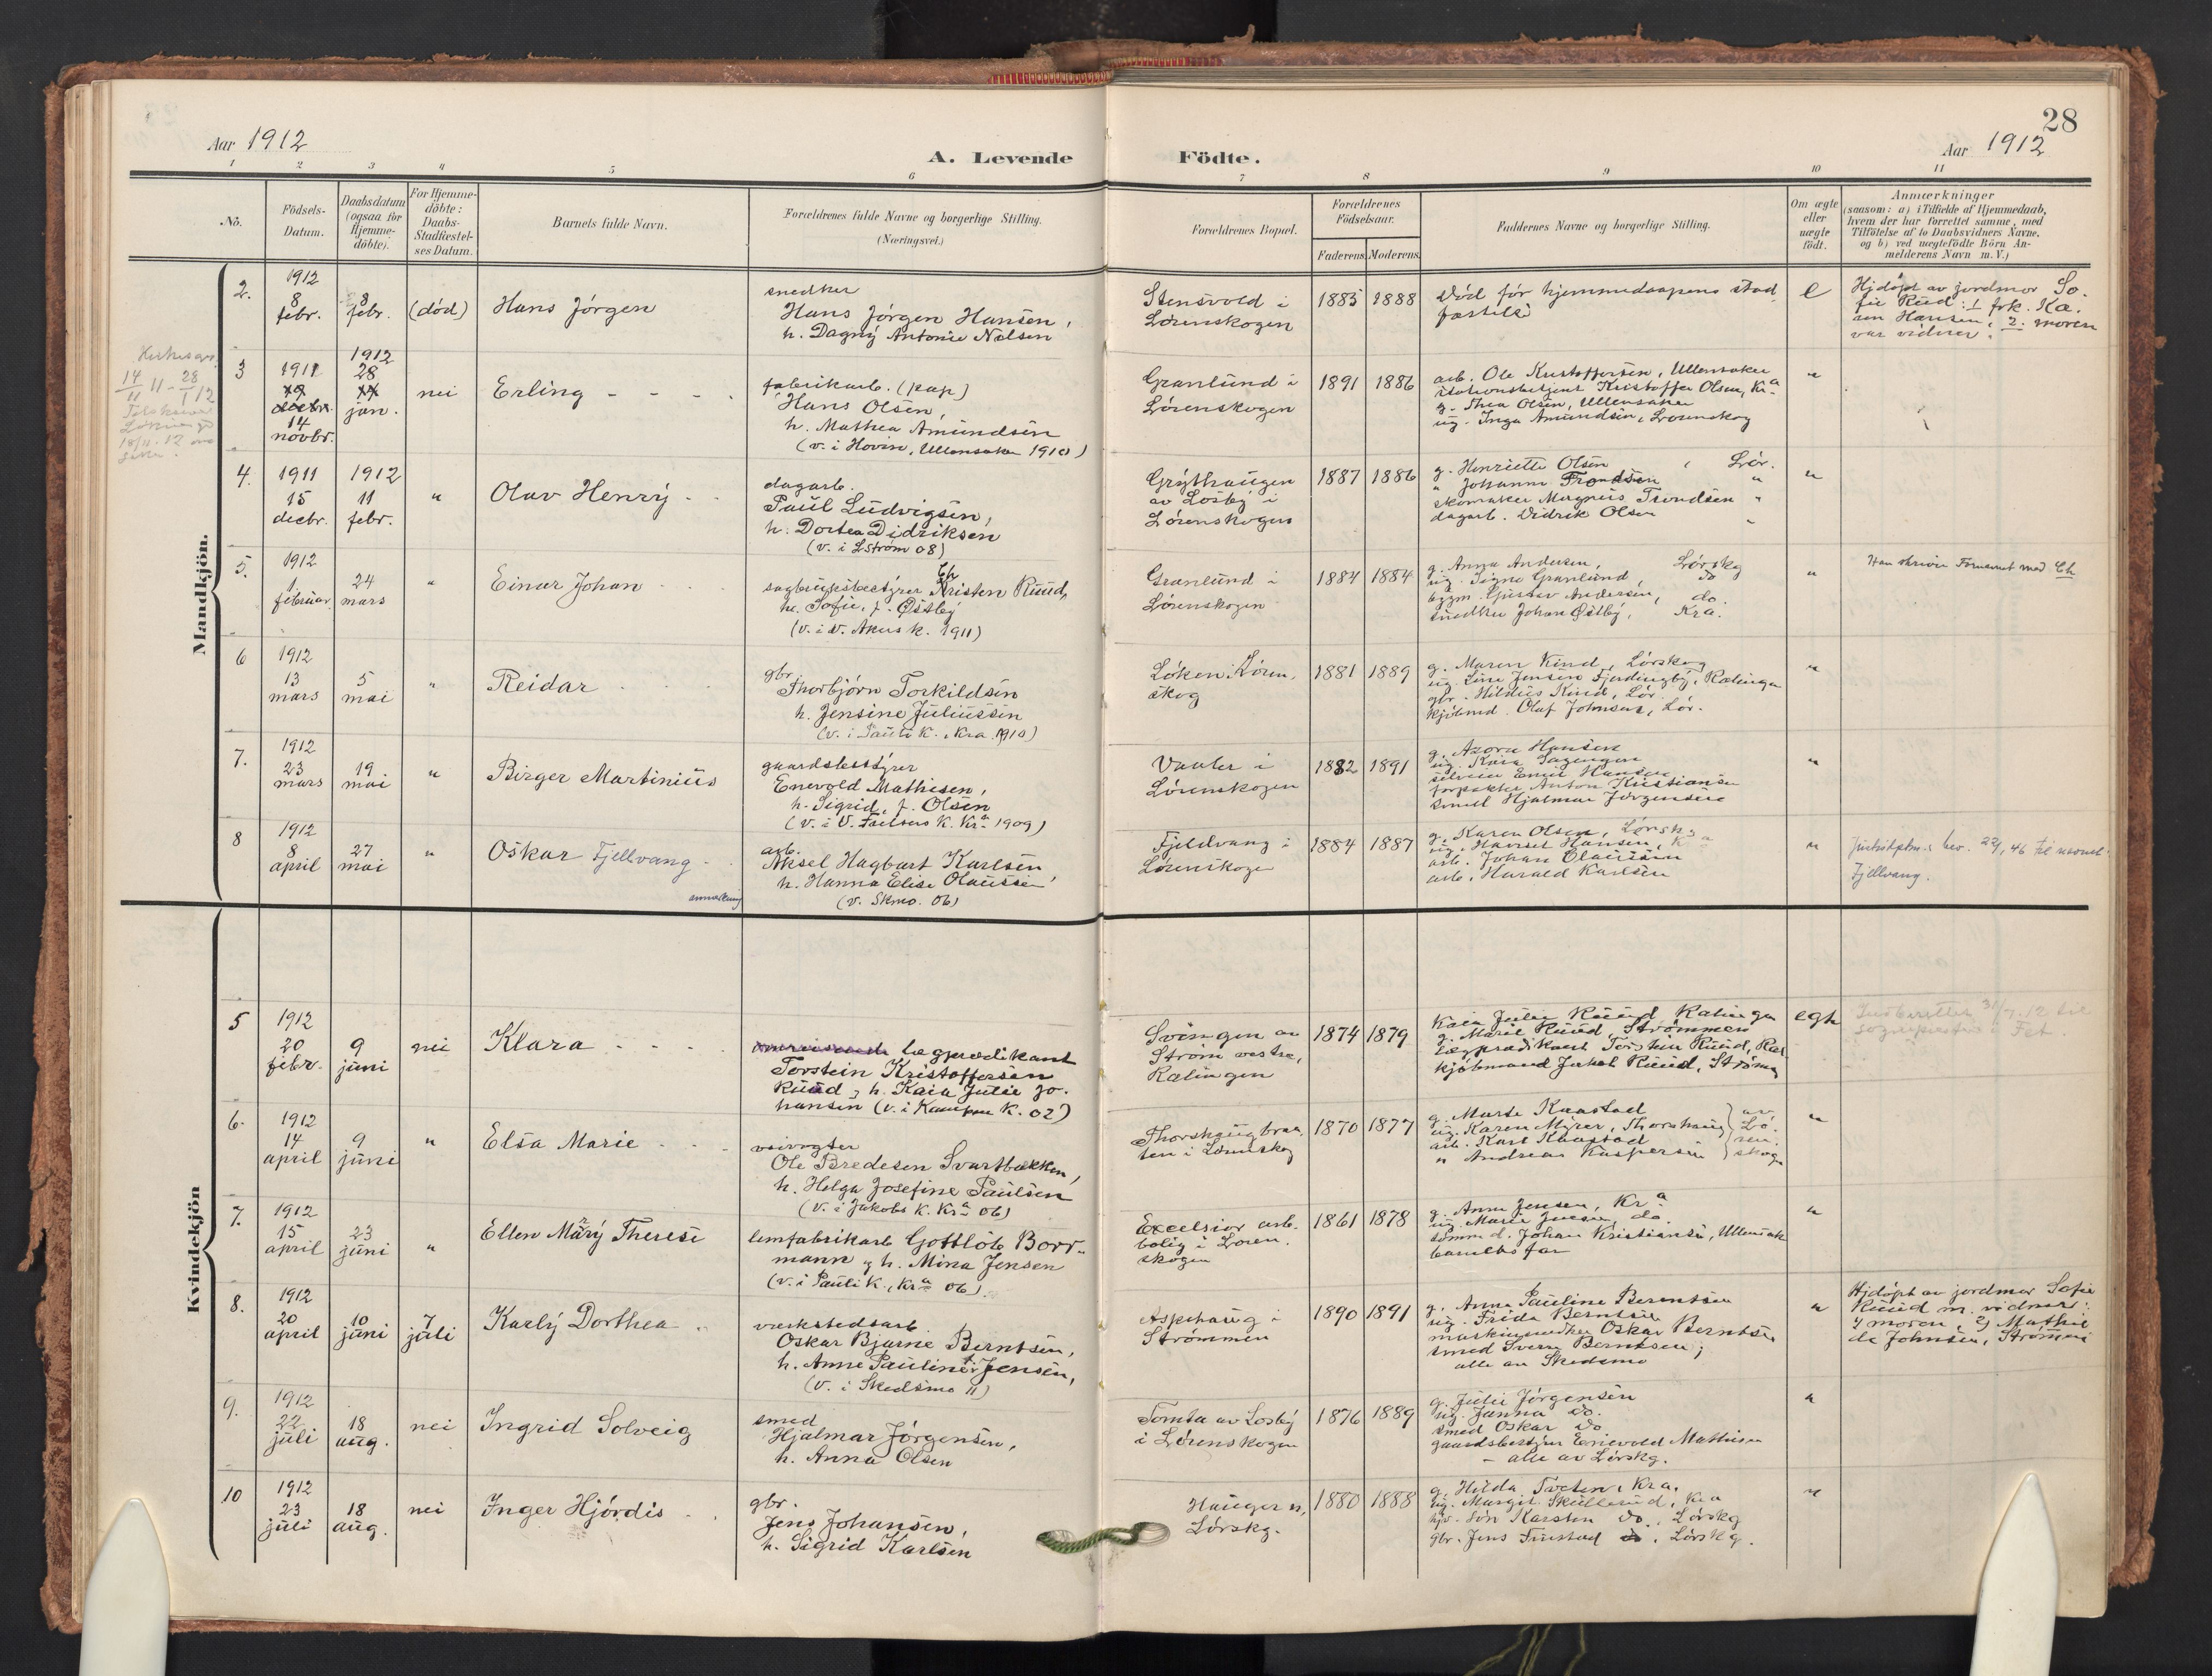 28
Aar 1912
A. Levende Födte.
Aar 1912
1 2 3 4 5 6 7 8 9 10 11
No.
Födsels-
Datum.
Daabsdatum
(ogsaa for
Hjemme-
döbte).
For Hjemme-
döbte:
Daabs-
Stadfæstel-
ses Datum.
Barnets fulde Navn.
Forældrenes fulde Navne og borgerlige Stilling.
(Næringsvei.)
Forældrenes Bopæl.
Forældrenes
Födselsaar.
Faderens. Moderens.
Faddernes Navne og borgerlige Stilling.
Om ægte
eller
uægte
födt.
Anmærkninger
(saasom: a) i Tilfælde af Hjemmedaab,
hvem der har forrettet samme, med
Tilföielse af to Daabsvidners Navne,
og b) ved uægtefödte Börn An-
melderens Navn m. V.)
Mandkjön.
2.
1912
8
febr.
8
febr.
(död)
Hans Jörgen
snedker
Hans Jörgen Hansen,
h. Dagny Antonie Nelsen
Stensvold i
Lörenskogen
1885 1888
Död för hjemmedaapens stad
fæstelse
e
Hjdöpt av jordmor So.
fie Ruud: 1 frk. Ka.
ren Hansen, 2. moren
var vidner.
3
1911
14
novbr.
1912
28
jan.
nei
Erling
fabrikarb. (pap)
Hans Olsen,
h. Mathea Amundsen
(v. i Hovin, Ullensaker 1910)
Granlund i
Lörenskogen
1891 1886
arb. Ole Kristoffersen, Ullensaker
stationsbetjent Kristoffer Olsen, Kra
g. Thea Olsen, Ullensaker
ug. Inga Amundsen, Lörenskog
"
4.
1911
15
decbr.
1912
11
febr.
"
Olav Henry
dagarb.
Paul Ludvigsen,
h. Dortea Didriksen
(v. i LStröm 08)
Grythaugen
av Losby i
Lörenskogen
1887 1886
g. Henriette Olsen, Lör.
" Johanne Trondsen "
skomaker Magnus Trondsen "
dagarb. Didrik Olsen "
"
5.
1912
1.
februar
24
mars
"
Einar Johan
Ch
sagbruksbestyrer Kristen Ruud,
h. Sofie, f. Östby
(v. i V. Akers k. 1911)
Granlund i
Lörenskogen
1884 1884
g. Anna Andersen, Lörskg
ug. Signe Granlund, do
bygm. Gustav Andersen, do.
snedker Johan Östby, Kra.
"
Han skriver Fornavnet med Ch
6
1912
13
mars
5
mai
"
Reidar
gbr.
Thorbjörn Torkildsen
h. Jensine Juliussen
(v. i Pauli K., Kra. 1910)
Löken i Lören.
skog
1881 1889
g. Maren Kind, Lörskog
ug. Line Jensen Fjerdingby, Rælingen
gbr. Hildius Kind, Lör.
kjöbmd. Olaf Johnsen, Lör.
"
7.
1912
23
mars
19
mai
"
Birger Martinius
gaardsbestyrer
Enevold Mathisen,
h. Sigrid, f. Olsen
(v. i V. Frelsers K. Kra 1909)
Vaaler i
Lörenskogen
1882 1891
g. Azora Hansen
forpakter Anton Kristiansen
smed Hjalmar Jörgensen
"
8
1912
8
april
27
mai
"
Oskar Fjellvang
anmerkning
arb.
Aksel Hagbart Karlsen,
h. Hanna Elise Olaussen
(v. Skmo. 06)
Fjeldvang i
Lörenskogen
1884 1887
g. Karen Olsen, Lörskg
arb. Johan Olaussen
arb. Harald Karlsen
"
Justisdptm.s bev. 22/1 46 til navnet
Fjellvang.
Kvindekjön
5
1912
20
febr.
9
juni
nei
Klara
lægprædikant
Torstein Kristoffersen
Ruud, h. Kaia Julie Jo.
hansen (v. i Kampen K. 02)
Svingen av
Ström vestre,
Rælingen
1874 1879
Kaia Julie Ruud Rælingen
g. Marie Ruud, Strömmen
lægprædikant Torstein Ruud, Ræl.
kjöbmand Jakob Ruud, Strömm
egte
Indberettet 31/7. 12 til
sognepresten i Fet
6.
1912
14
april
9
juni
"
Elsa Marie
veivogter
Ole Bredesen Svartbækken,
h. Helga Josefine Paulsen
(v. i Jakobs K. Kra 06)
Thorshaugbraa.
ten i Lörenskog
1870 1877
g. Marte Kaastad
ug. Karen Myrer, Thorshaug
arb. Karl Kaastad
" Andreas Kaspersen
av
Lö.
ren.
skogen
"
7.
1912
15
april
23
juni
"
Ellen Mary Therese
limfabrikarb Gottlob Borr.
mann og h. Mina Jensen
(v. i Pauli K., Kra 06)
Excelsior arb.
bolig i Lören.
skogen
1861 1878
g. Anna Jensen, Kra
ug. Marie Jensen, do.
tömmd. Johan Kristiansen, Ullensak
barnets far
"
8.
1912
20
april
10
juni
7
juli
Karly Dorthea
værkstedsarb.
Oskar Bjarne Berntsen,
h. Anne Pauline Jensen,
(v. i Skedsmo 11)
Aspehaug i
Strömmen
1890 1891
g. Anna Pauline Berntsen
ug. Frida Berntsen
maskinsnedker Oskar Berntsen
smed Sverre Berntsen;
alle av Skedsmo
"
Hjdöpt av jordmor Sofie
Ruud m. vidner:
1) moren, 2) Mathil
de Johnsen, Strömmen
9.
1912
22
juli
18
aug.
nei
Ingrid Solveig
smed
Hjalmar Jörgensen,
h. Anna Olsen
Tomta av Losby
i Lörenskogen
1876 1889
g. Julie Jörgensen
ug. Janna do.
smed Oskar do
gaardsbestyrer Enevold Mathisen
- alle av Lörskg.
"
10
1912
23
juli
18
aug.
nei
Inger Hjördis
gbr.
Jens Johansen,
h. Sigrid Karlsen
Hauger n,
Lörskg.
1880 1888
g. Hilda Tveten, Kra.
ug. Margit Skullerud, Kra
Karsten do., Lörskg
gbr. Jens Finstad, Lörskg.
"